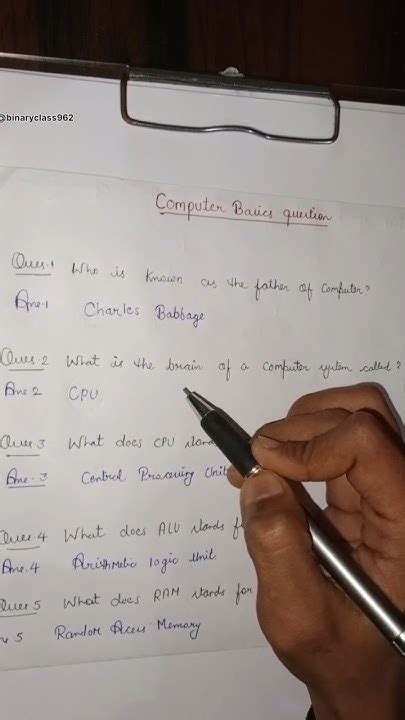 @binaryclass962
Computer Basics question
Ques.1 Who is known as the father of computer?
Ans.1 Charles Babbage
Ques.2 What is the brain of a computer system called?
Ans 2 CPU
Ques 3 What does CPU stand
Ans.3 Central Processing Unit
Ques.4 What does ALU stands f
Ans.4 Arithmetic logic Unit
Ques 5 What does RAM stands for
5 Random Access Memory